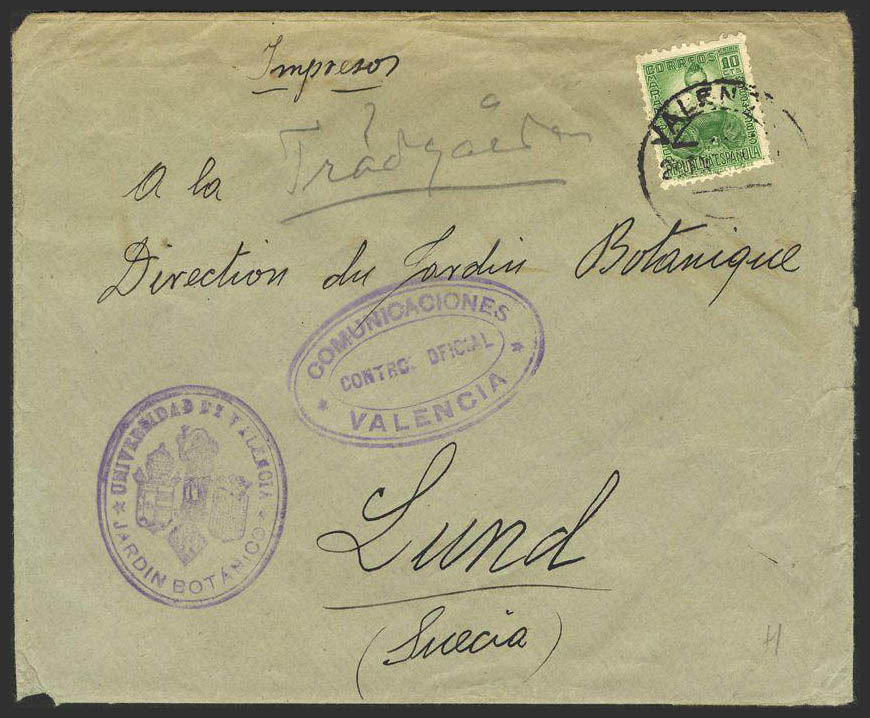 Impresos
CORREOS 10
REPUBLICA ESPAÑOLA
VALEN
Trädgården
A la
Direction du Jardin Botanique
COMUNICACIONES
CONTROL OFICIAL
* VALENCIA *
UNIVERSIDAD DE VALENCIA
* JARDIN BOTÁNICO *
Lund
(Suecia)
H